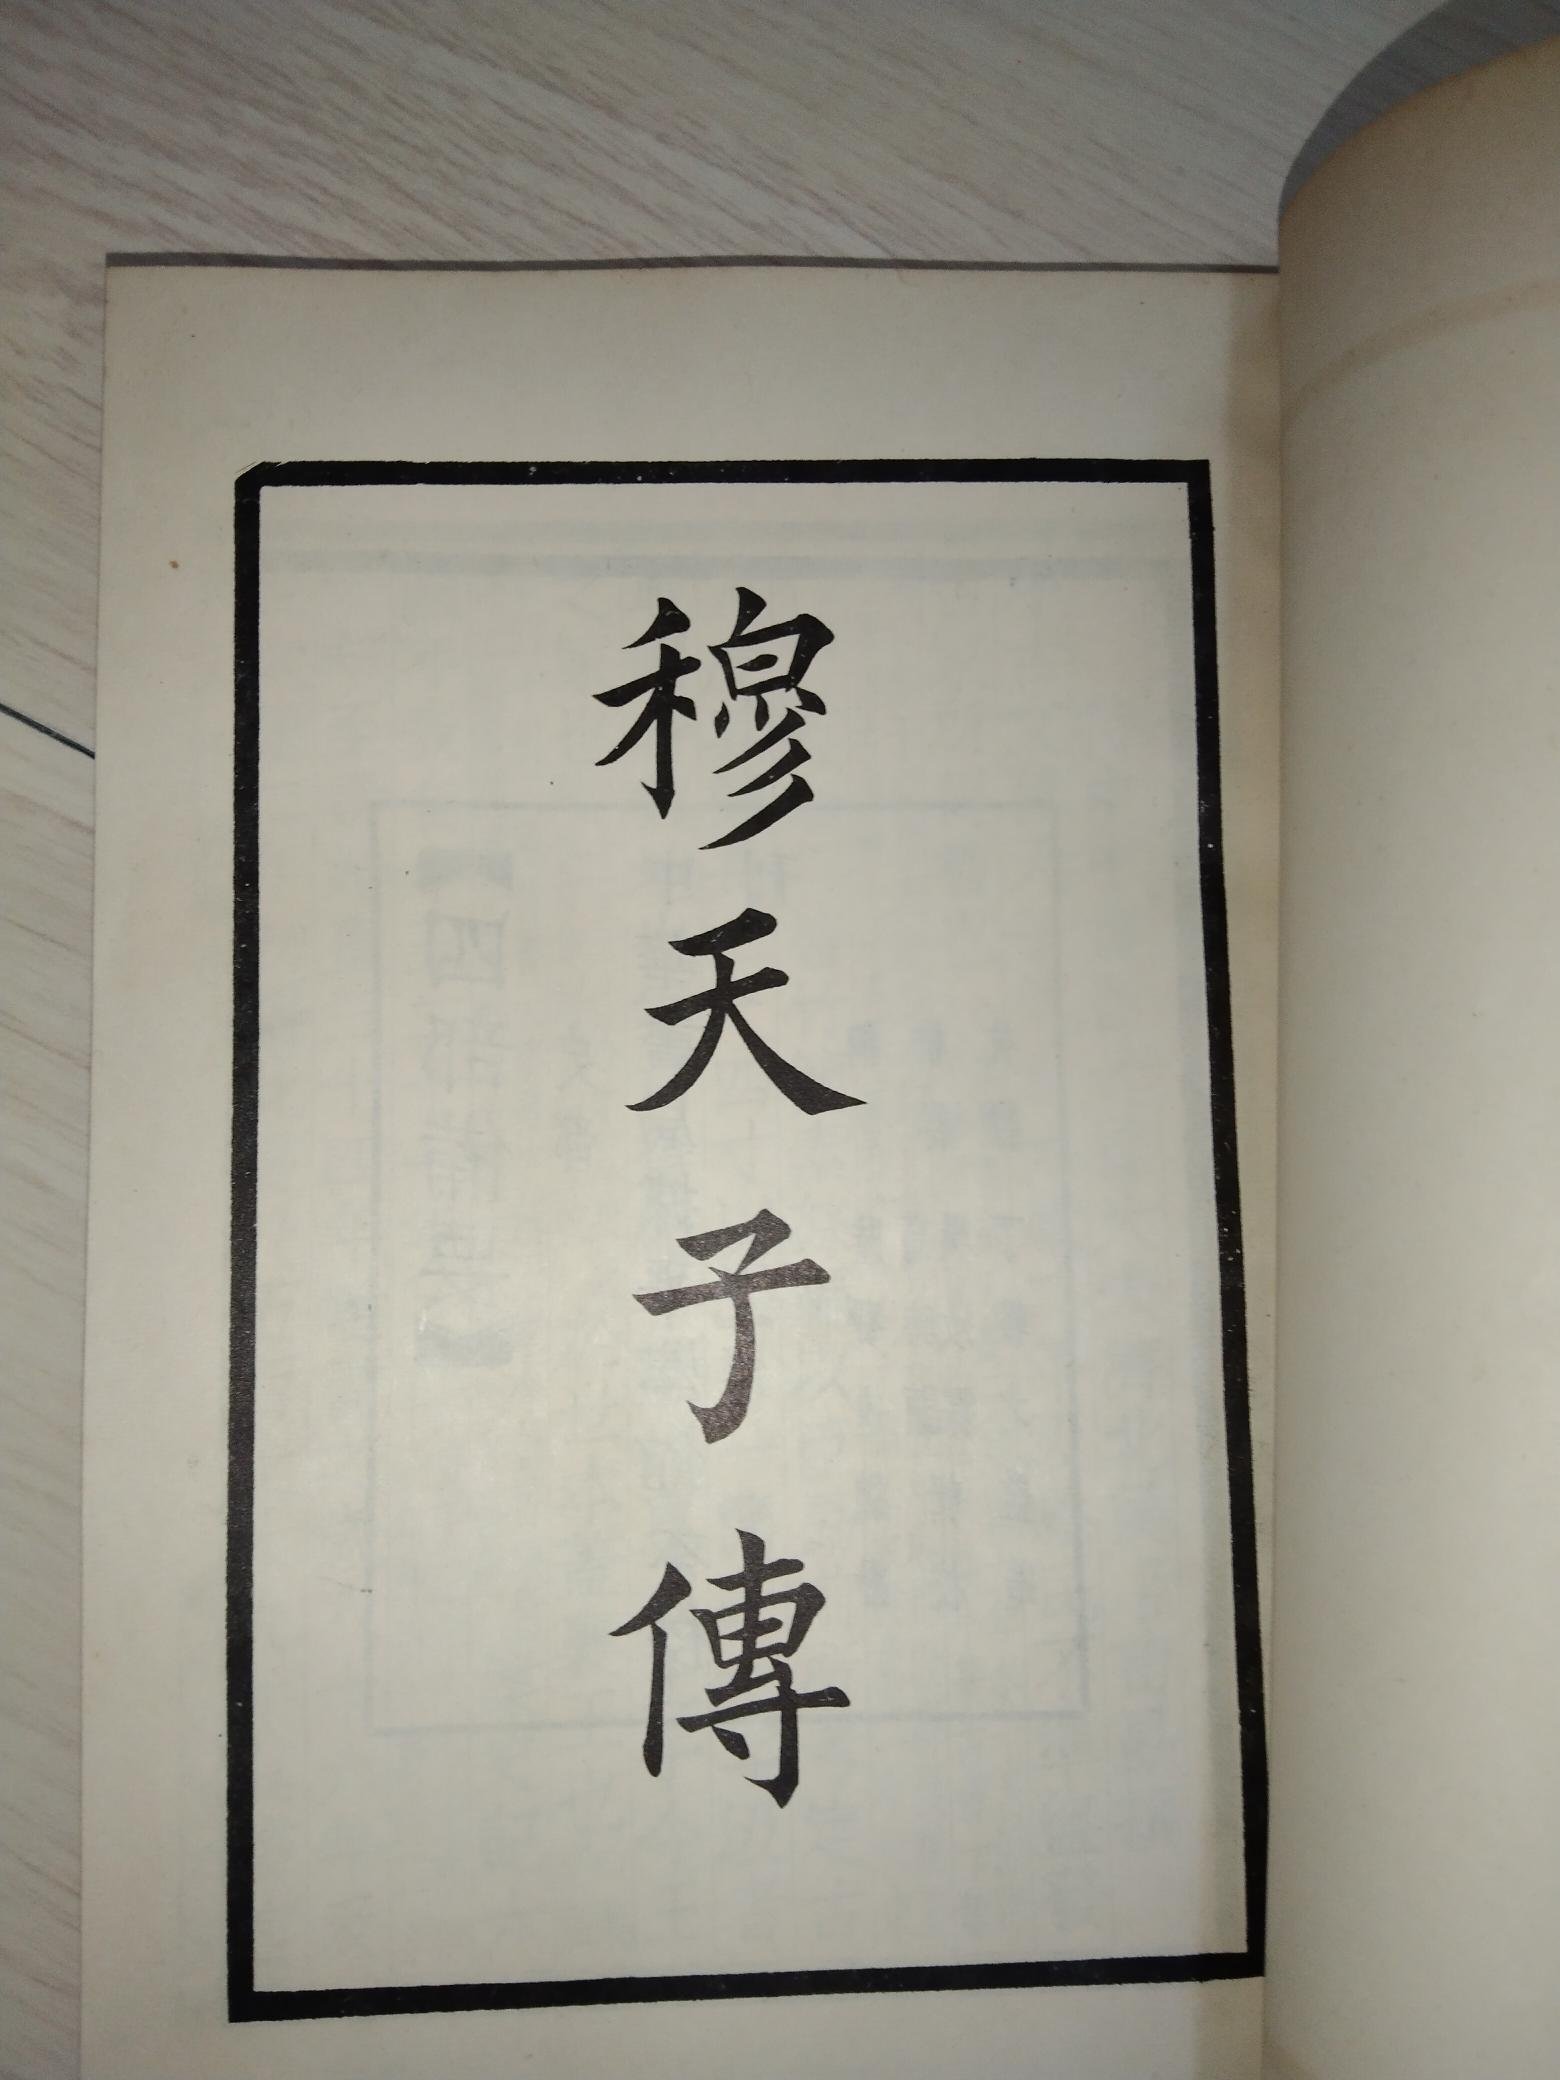 穆天子傳